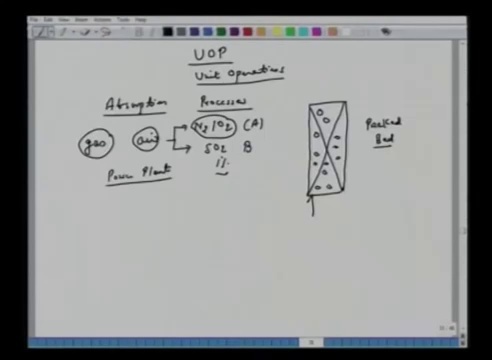 File Edit View Insert Actions Tools Help
UOP
Unit Operations
Absorption
Processes
gas
air
N2/O2 (A)
SO2 B
1%
Power Plant
Packed
Bed